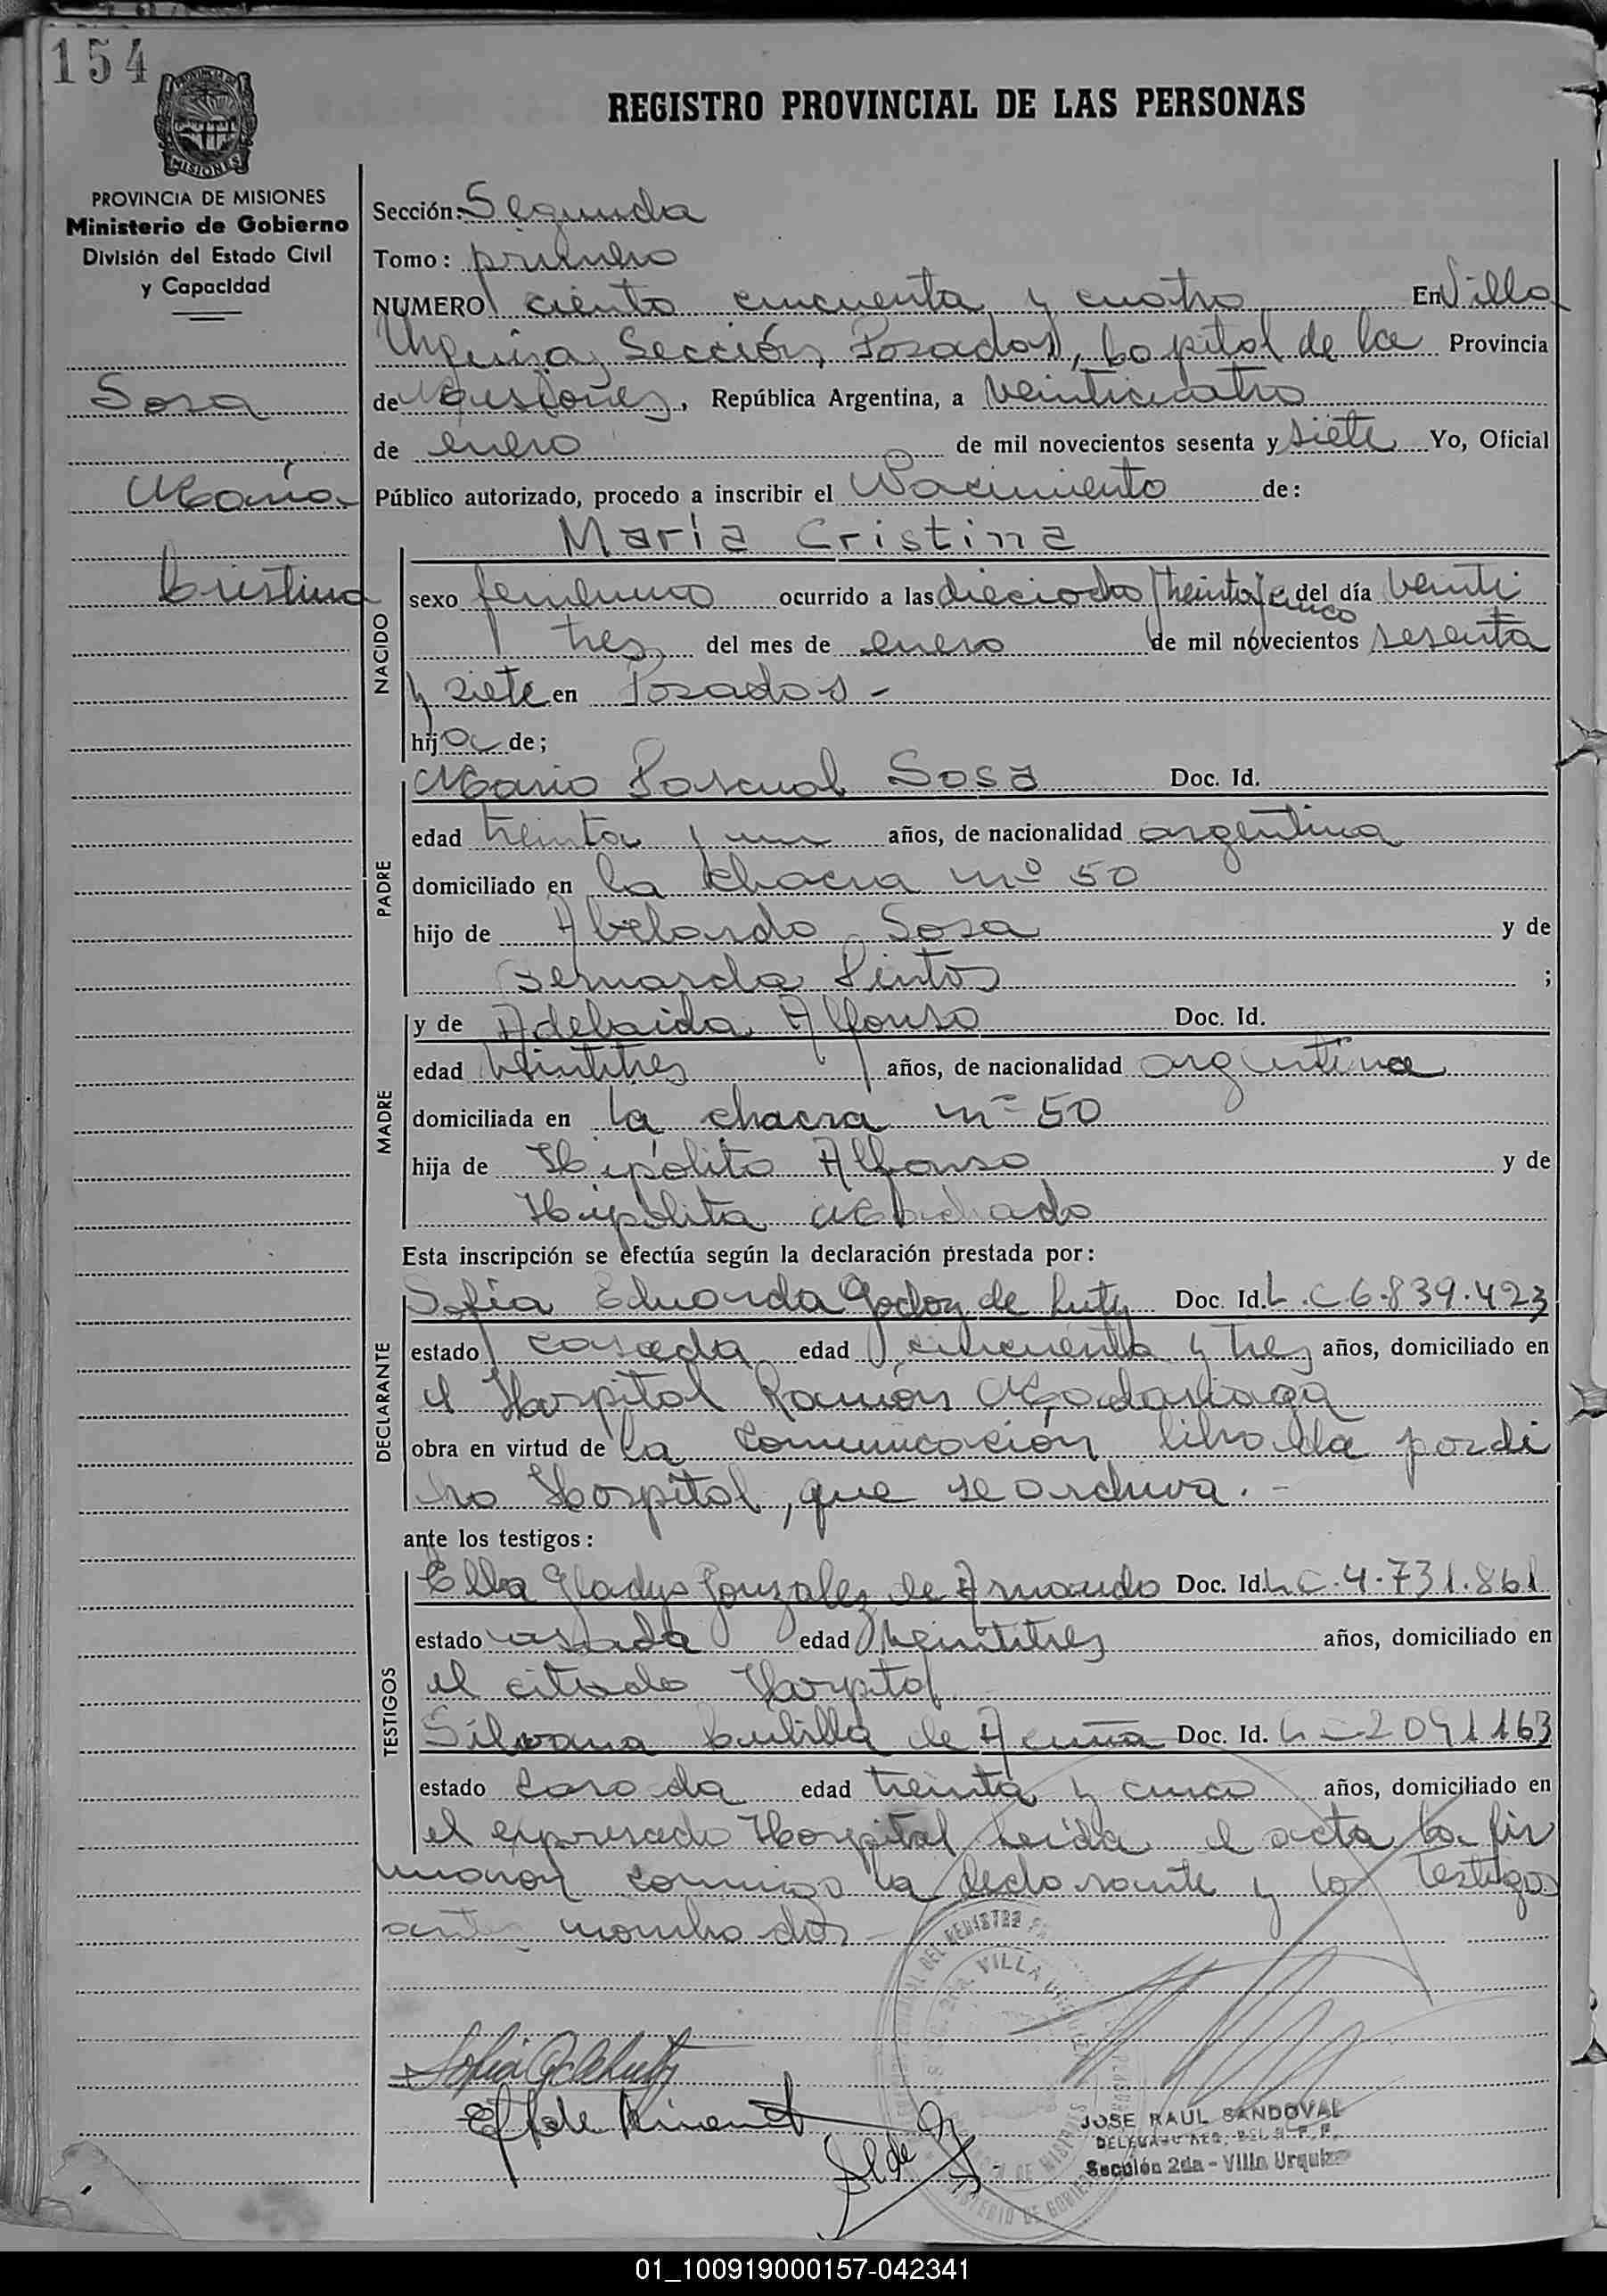 154
MISIONES
REGISTRO PROVINCIAL DE LAS PERSONAS
PROVINCIA DE MISIONES
Ministerio de Gobierno
División del Estado Civil
y Capacidad
Sosa
María
Cristina
Sección: Segunda
Tomo: primero
NUMERO ciento cincuenta y cuatro En Villa
Urquiza, Sección, Posadas, Capital de la Provincia
de Misiones, República Argentina, a veinticuatro
de enero de mil novecientos sesenta y siete Yo, Oficial
Público autorizado, procedo a inscribir el Nacimiento de:
María Cristina
NACIDO
sexo femenino ocurrido a las dieciocho treinta y cinco del día veinti
tres del mes de enero de mil novecientos sesenta
y siete en Posadas -
hija de;
PADRE
Mario Pascual Sosa Doc. Id.
edad treinta y un años, de nacionalidad argentina
domiciliado en la chacra nº 50
hijo de Abelardo Sosa y de
Bernarda Pintos ;
MADRE
y de Adelaida Alfonso Doc. Id.
edad veintitres años, de nacionalidad argentina
domiciliada en la chacra nº 50
hija de Hipólito Alfonso y de
Hipólita Machado
Esta inscripción se efectúa según la declaración prestada por:
DECLARANTE
Sofía Eduarda Godoy de Luty Doc. Id. L.C 6.839.423
estado casada edad cincuenta y tres años, domiciliado en
el Hospital Ramón Madariaga
obra en virtud de la comunicación librada por di
cho Hospital, que se archiva. -
ante los testigos:
TESTIGOS
Elba Gladys Gonzalez de Doc. Id. L C. 4.731.861
estado casada edad veintitres años, domiciliado en
el citado Hospital
Silvana de Acuña Doc. Id. L C 2091163
estado casada edad treinta y cinco años, domiciliado en
el expresado Hospital leída el acta la fir
maron conmigo la declarante y los testigos
antes nombrados -
VILLA URQUIZA
JOSE RAUL SANDOVAL
Sección 2da - Villa Urquiza
01_100919000157-042341